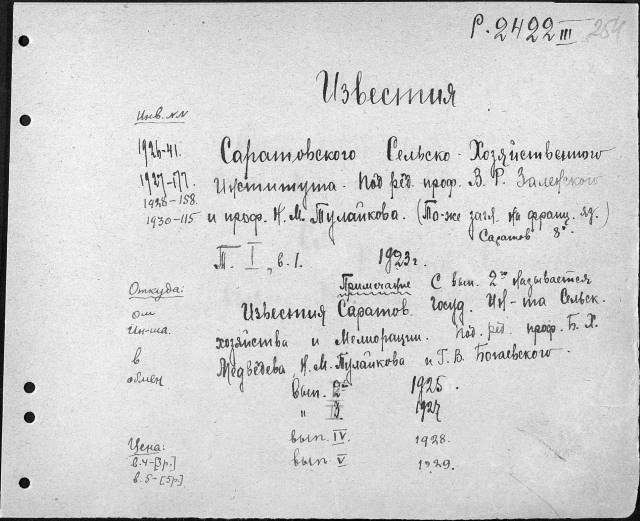 P.2422 III 254
Известия
Инв. NN
1926-41. Саратовского Сельско-Хозяйственного
1927-177. Института. Под ред. проф. В. Р. Заленского
1928-158. и проф. Н. М. Тулайкова. (То-же загл. на франц. яз.)
1930-115 Саратов 8°
Т. I, в. 1. 1923 г.
Примечание С вып. 2го называется
Откуда: Известия Саратов. Госуд. Ин-та Сельск.
от хозяйства и Мелиорации. Под ред. проф. Б. Х.
Ин-та. Медведева, Н. М. Тулайкова и Г. В. Богаевского.
в
обмен
вып. 2й 1925.
" 3 1927
вып. IV. 1928.
вып. V 1929.
Цена:
в. 4-[3р.]
в. 5-[5р.]